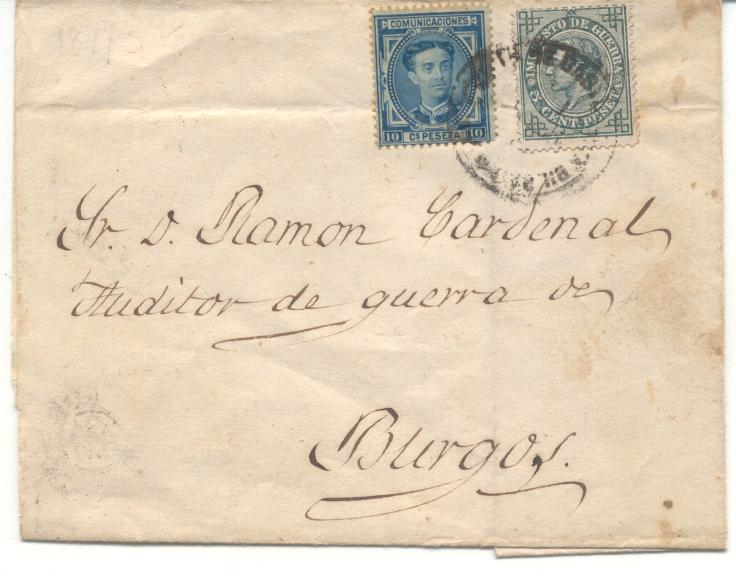 1877
COMUNICACIONES
10 CS PESETA 10
IMPUESTO DE GUERRA
5 CENT. PESETA
Sr. D. Ramon Cardenal
Auditor de guerra de
Burgos.